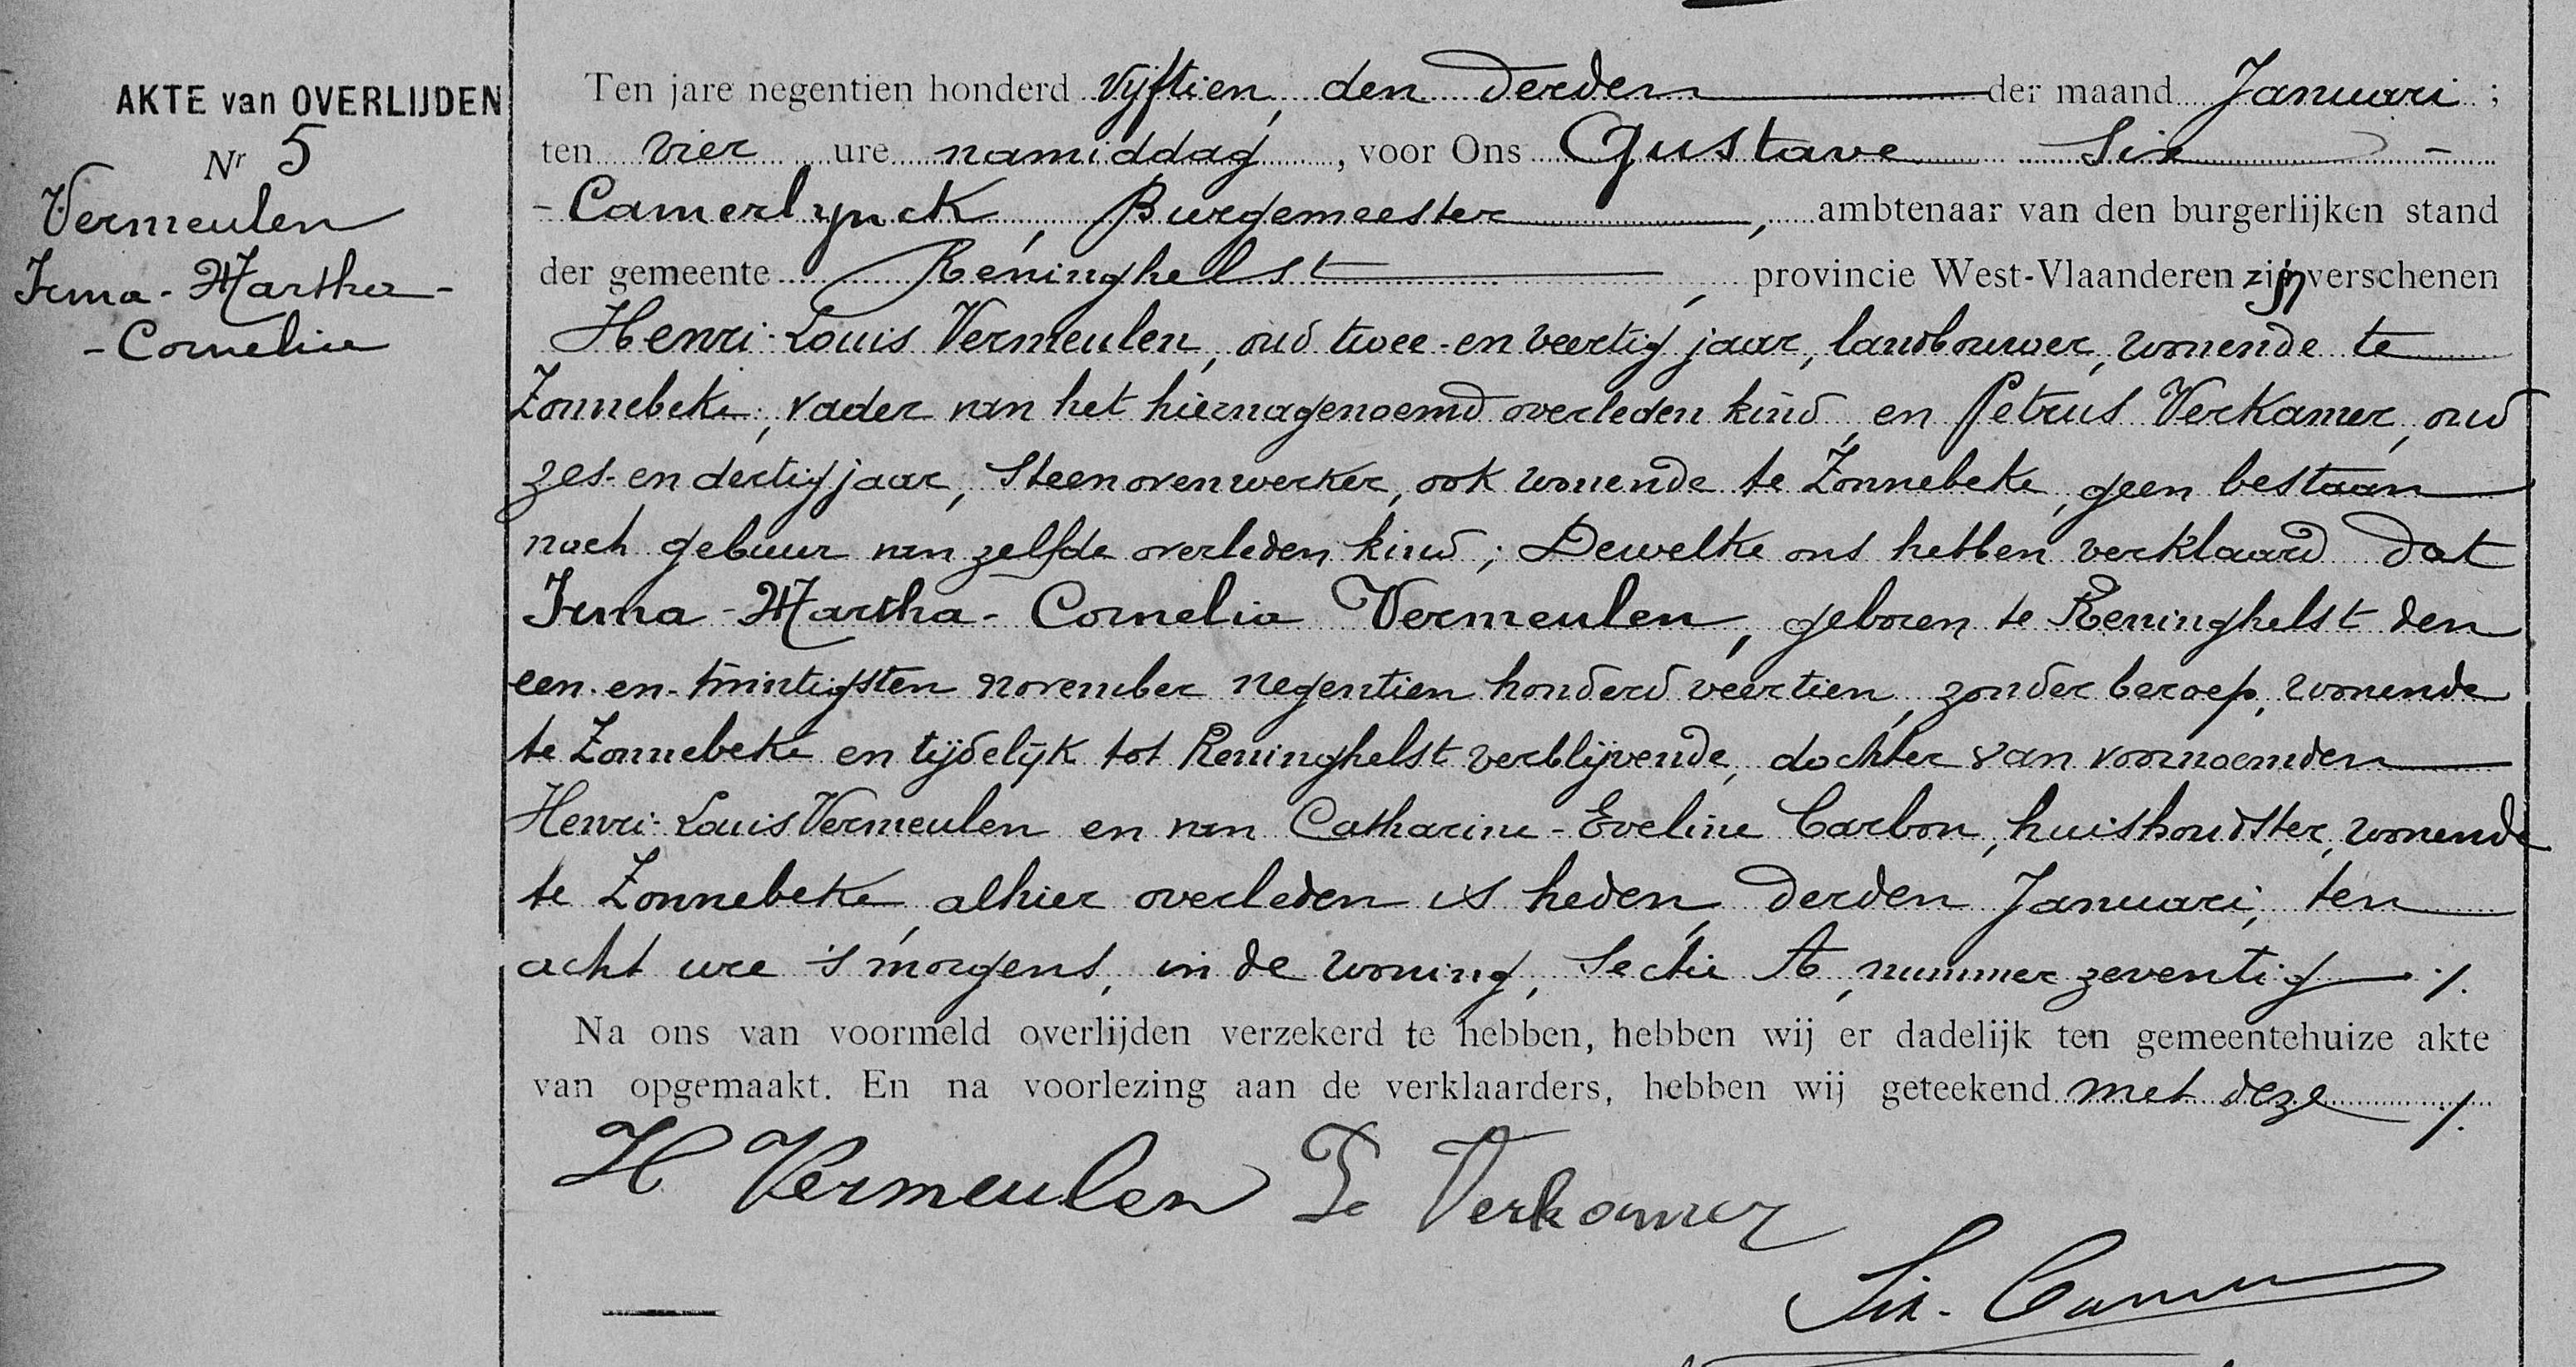 AKTE van OVERLIJDEN
Nr 5
Vermeulen
Irma-Martha-
-Cornelia
Ten jare negentien honderd vijftien, den derden der maand Januari ;
ten vier ure namiddag, voor Ons Gustave Six -
- Camerlynck, Burgemeester, ambtenaar van den burgerlijken stand
der gemeente Reninghelst, provincie West-Vlaanderen zijn verschenen
Henri-Louis Vermeulen, oud twee-en veertig jaar, landbouwer, wonende te
Zonnebeke, vader van het hiernagenoemd overleden kind, en Petrus Verkamer, oud
zes-en dertig jaar, steenovenwerker, ook wonende te Zonnebeke, geen bestaan
noch gebuur van zelfde overleden kind; Dewelke ons hebben verklaard dat
Irma-Martha-Cornelia Vermeulen, geboren te Reninghelst den
een-en-twintigsten november negentien honderd veertien, zonder beroep, wonende
te Zonnebeke en tijdelijk tot Reninghelst verblijvende, dochter van voornoemden
Henri-Louis Vermeulen en van Catharine-Eveline Carbon, huishoudster, wonende
te Zonnebeke, alhier overleden is heden, derden Januari, ten
acht ure 's morgens, in de woning, Sectie A, nummer zeventig ./.
Na ons van voormeld overlijden verzekerd te hebben, hebben wij er dadelijk ten gemeentehuize akte
van opgemaakt. En na voorlezing aan de verklaarders, hebben wij geteekend met deze ./.
H Vermeulen Pe Verkamer
Six-